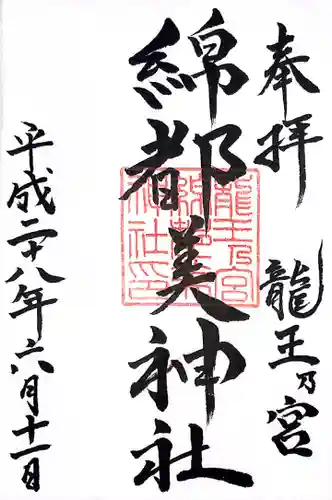 奉拝
龍王乃宮
綿都美神社
龍王乃宮
綿都美
神社印
平成二十八年六月十一日